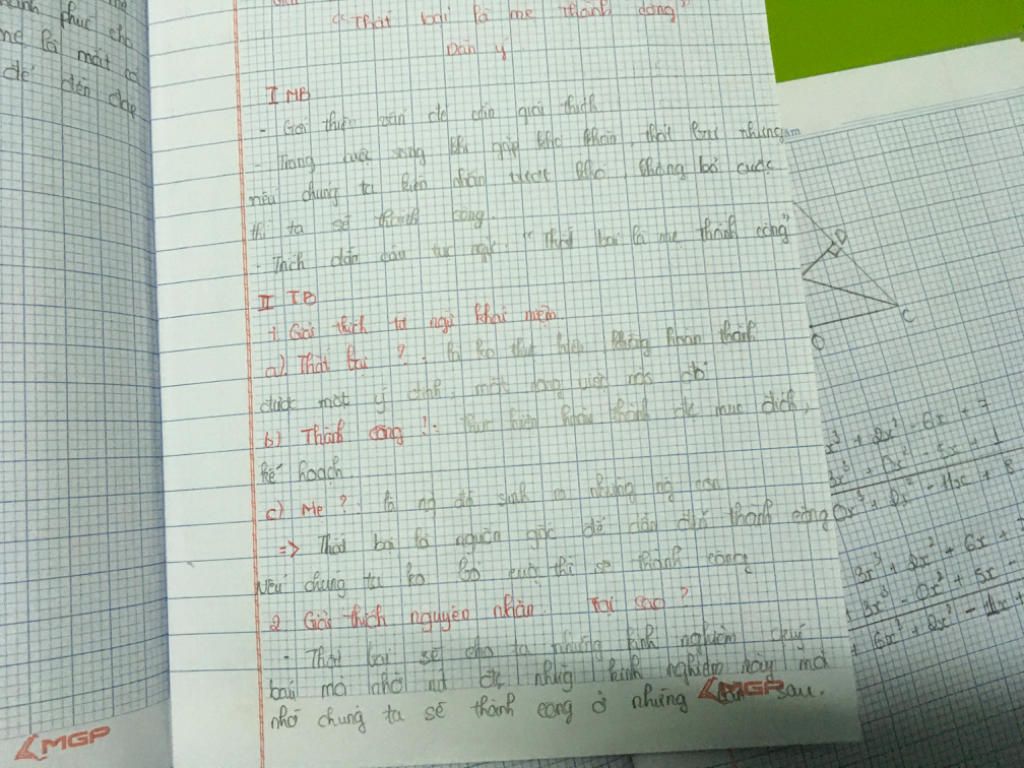 ành phúc cho
mẹ là mặt
để đến đáp
"Thất bại là mẹ thành công"
Dàn ý
I MB
- Giới thiệu vấn đề cần giải thích
- Trong cuộc sống khi gặp khó khăn, thất bại nhưng
nếu chúng ta kiên nhẫn vượt khó, không bỏ cuộc
thì ta sẽ thành công.
- Trích dẫn câu tục ngữ: "Thất bại là mẹ thành công"
II TB
1. Giải thích từ ngữ khái niệm
a) Thất bại?: là ko thực hiện, không hoàn thành
được một ý định, một công việc nào đó
b) Thành công!: thực hiện hoàn thành đc mục đích,
kế hoạch
c) Mẹ?: là ng đã sinh ra những ng con
=> Thất bại là nguồn gốc để dẫn đến thành công
Nếu chúng ta ko bỏ cuộc thì sẽ thành công
2 Giải thích nguyên nhân. Tại sao?
- Thất bại sẽ cho ta những kinh nghiệm quý
báu mà nhờ nó đc những kinh nghiệm này mà
nhờ chúng ta sẽ thành công ở những lần sau.
MGP
MGP
D
C
x³ + 2x² - 6x + 7
3x³ + 0x² - 5x + 1
0x³ + 2x² - 11x + 8
3x³ + 2x² + 6x +
3x³ - 0x² + 5x -
6x³ + 2x² - 11x +